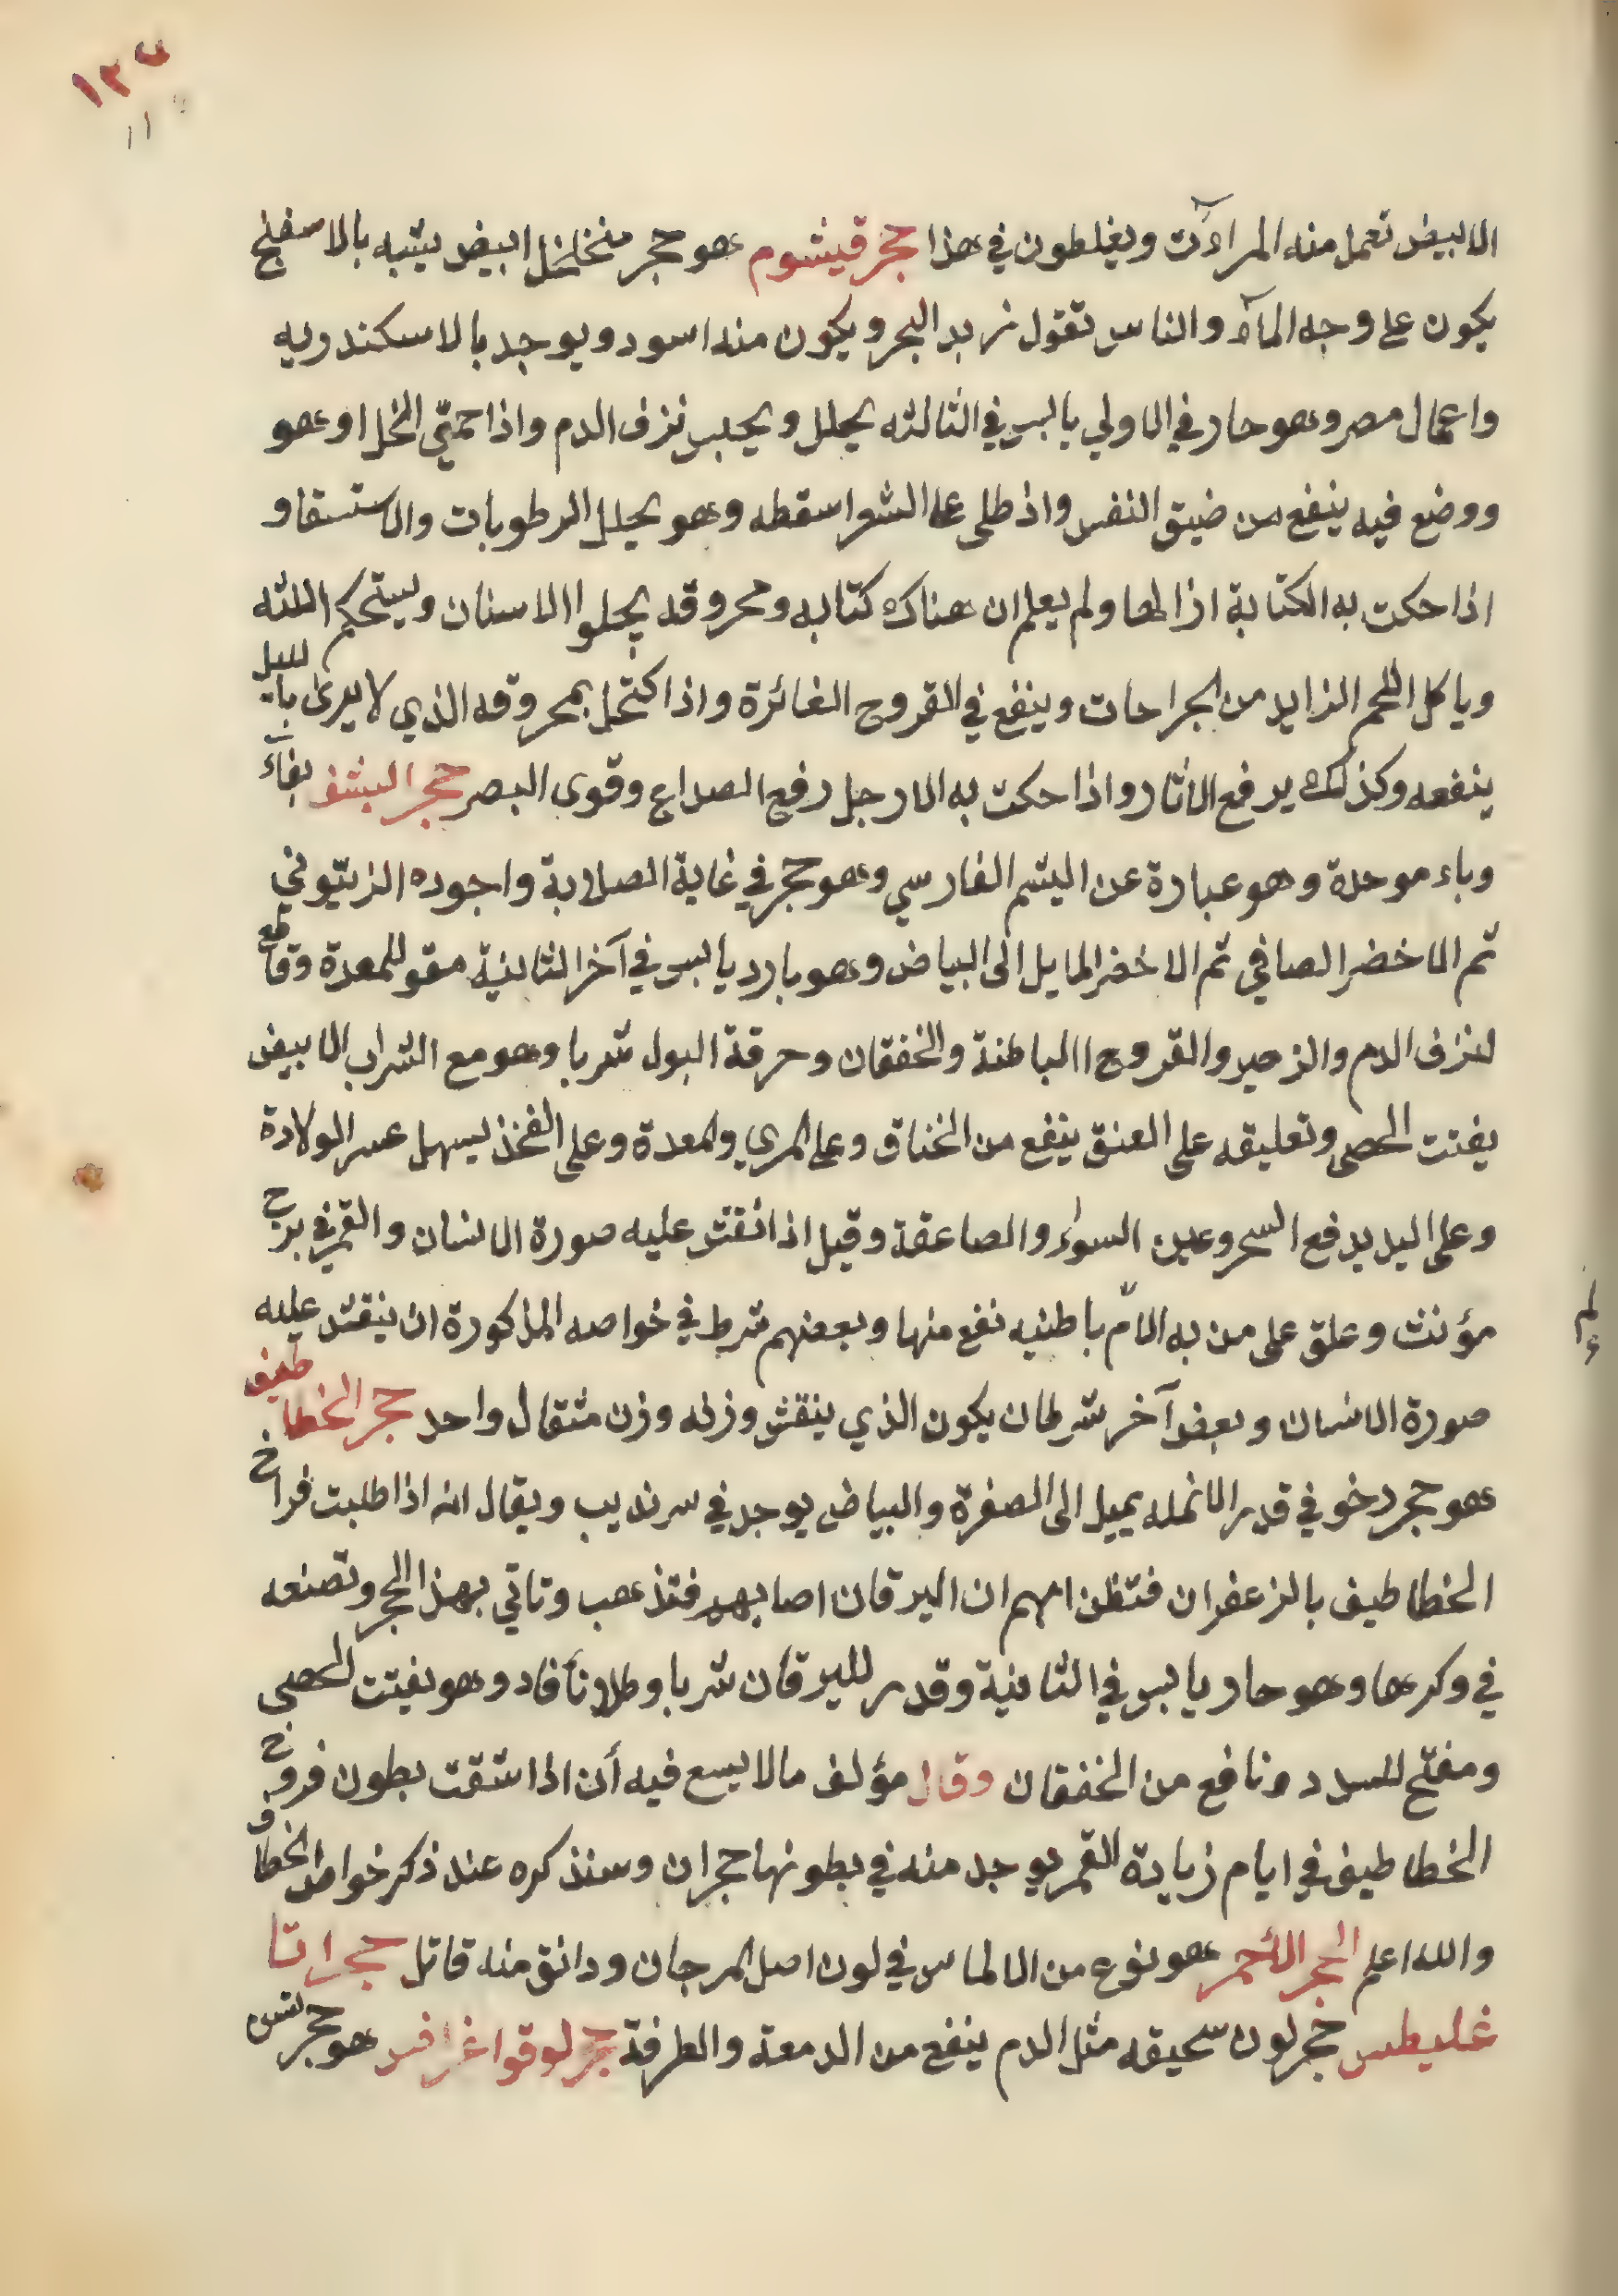 ١٢٧
١١
الابيض تعمل منه المرآت ويغلطون في هذا حجر قيشوم هو حجر متخلخل ابيض يشبه بالاسفنج
يكون على وجه المآء والناس تقول زبد البحر ويكون منه اسود ويوجد بالاسكندريه
واعمال مصر وهو حار في الاولي يابس في الثالثه يحلل ويحبس نزف الدم واذا حمّى الخل او هو
ووضع فيه ينفع من ضيق النفس واذ طلى على الشعر اسقطه وهو يحلل الرطوبات والاستسقا و
اذا حكت به الكتابة ازالها ولم يعلم ان هناك كتابه ومحروقه يجلوا الاسنان ويستحكم اللثه
وياكل اللحم الزايد من الجراحات وينفع في القروح الغائرة واذا اكتحل بمحروقه الذي لا يرى بالليل
ينفعه وكذلك يرفع الاثار واذا حكت به الارجل رفع الصداع وقوى البصر حجر اليشف بفآء
وباء موحدة وهو عبارة عن اليشم الفارسي وهو حجر في غاية الصلابة واجوده الزيتوني
ثم الاخضر الصافي ثم الاخضر المايل الى البياض وهو بارد يابس في آخر الثانية مقو للمعدة وقاطع
لنزف الدم والزحير والقروح االباطنة والخفقان وحرقة البول شربا وهو مع الشراب الابيض
يفتت الحصى وتعليقه على العنق ينفع من الخناق وعلى المري والمعدة وعلى الفخذ يسهل عسر الولادة
وعلى اليد يدفع السحر وعين السوء والصاعقة وقيل اذا نقش عليه صورة الانسان والقمر في برج
مؤنث وعلق على من به الآم باطنيه نفع منها وبعضهم شرط في خواصه المذكورة ان ينقش عليه
صورة الانسان وبعض آخر شرط ان يكون الذي ينقش وزنه وزن مثقال واحد حجر الخطاطيف
هو حجر رخو في قدر الانمله يميل الى الصفرة والبياض يوجد في سرنديب ويقال انه اذا طلبت فراخ
الخطاطيف بالزعفران فتظن امهم ان اليرقان اصابهم فتذهب وتاتي بهذا الحجر وتصنعه
في وكرها وهو حار يابس في الثانية وقدر لليرقان شربا وطلاء نأفاد وهو يفتت الحصى
ومفتح للسدد ونافع من الخفقان وقال مؤلف مالا يسع فيه أن اذا شقت بطون فروخ
الخطاطيف في ايام زيادة القمر يوجد منه في بطونها حجران وسنذكره عند ذكر خواص الخطاف
والله اعلم الحجر الأحمر هو نوع من الالماس في لون اصل المرجان ودانق منه قاتل حجر اتا
غليطس حجر لون سحيقه مثل الدم ينفع من الدمعة والطرفة حجر لوقوا غرافس هو حجر